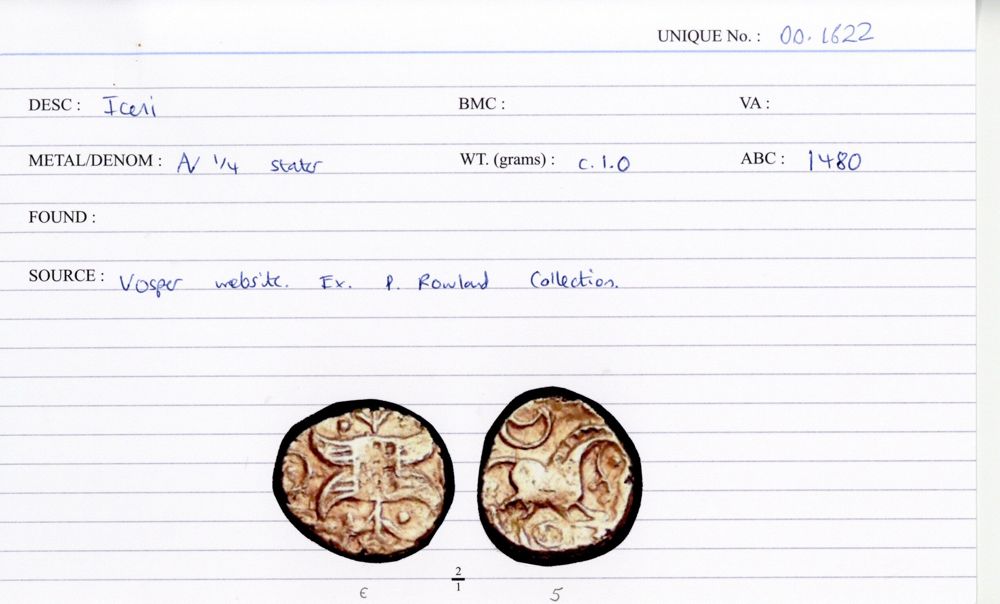 UNIQUE No. : 00.1622
DESC : Iceni BMC : VA :
METAL/DENOM : AV 1/4 stater WT. (grams) : c. 1.0 ABC : 1480
FOUND :
SOURCE : Vosper website. Ex. P. Rowland Collection.
2
1
€ 5